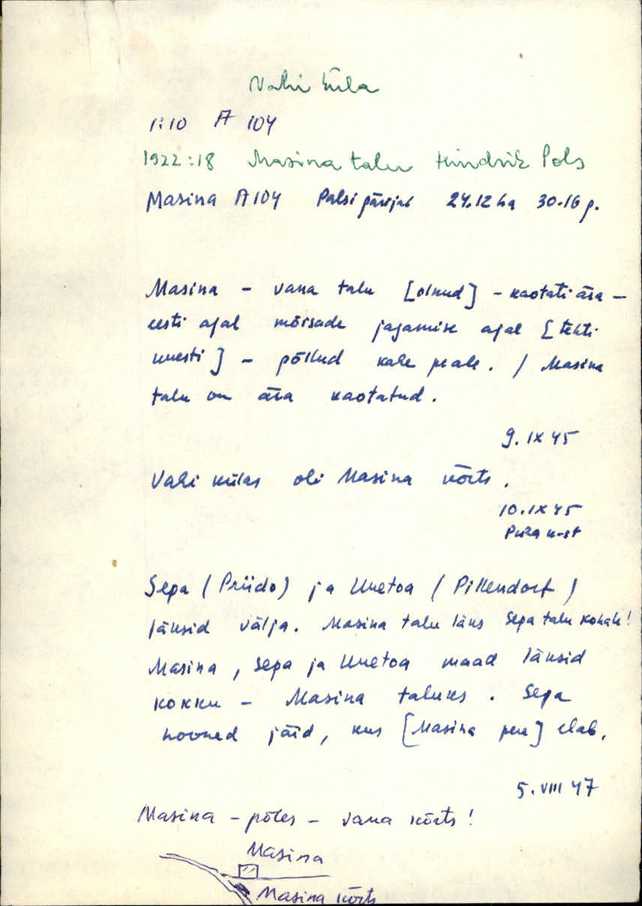 Vahi küla
1:10 A 104
1922:18 Masina talu Hindrik Pols
Masina A104 Palsi pärijat 24.12 ha 30.16 p.
Masina – vana talu [olnud] – kaotati ära –
eesti ajal mõisade jagamise ajal [tehti
uuesti] – põllud kahe peale. / Masina
talu on ära kaotatud.
9. IX 45
Vahi külas oli Masina kõrts.
10. IX 45
Sepa (Priido) ja Uuetoa (Pillendorf)
läksid välja. Masina talu läks Sepa talu kohale!
Masina, Sepa ja Uuetoa maad läksid
kokku – Masina taluks. Sepa
hooned jäid, kus [Masina pere] elab.
5. VIII 47
Masina – põles – vana kõrts!
Masina
Masina kõrts